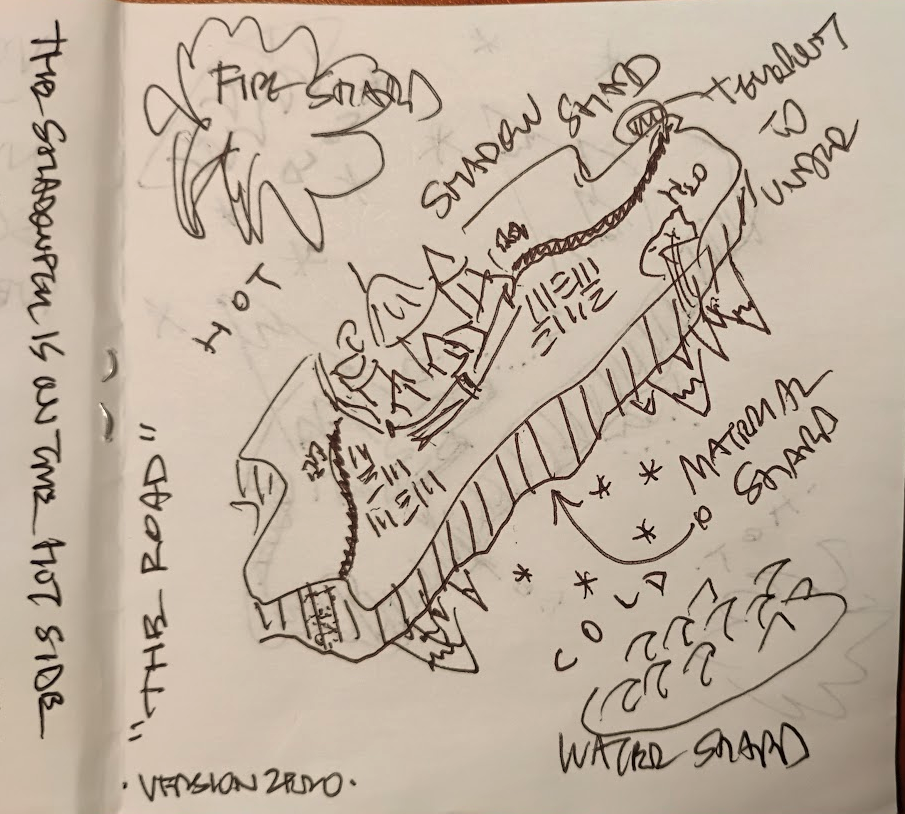 THE SHADOWFELL IS ON THE HOT SIDE
"THE ROAD"
· VERSION ZERO ·
FIRE SHARD
HOT
SHADOW SHARD
UNDER
H2O
MATERIAL
SHARD
COLD
WATER SHARD